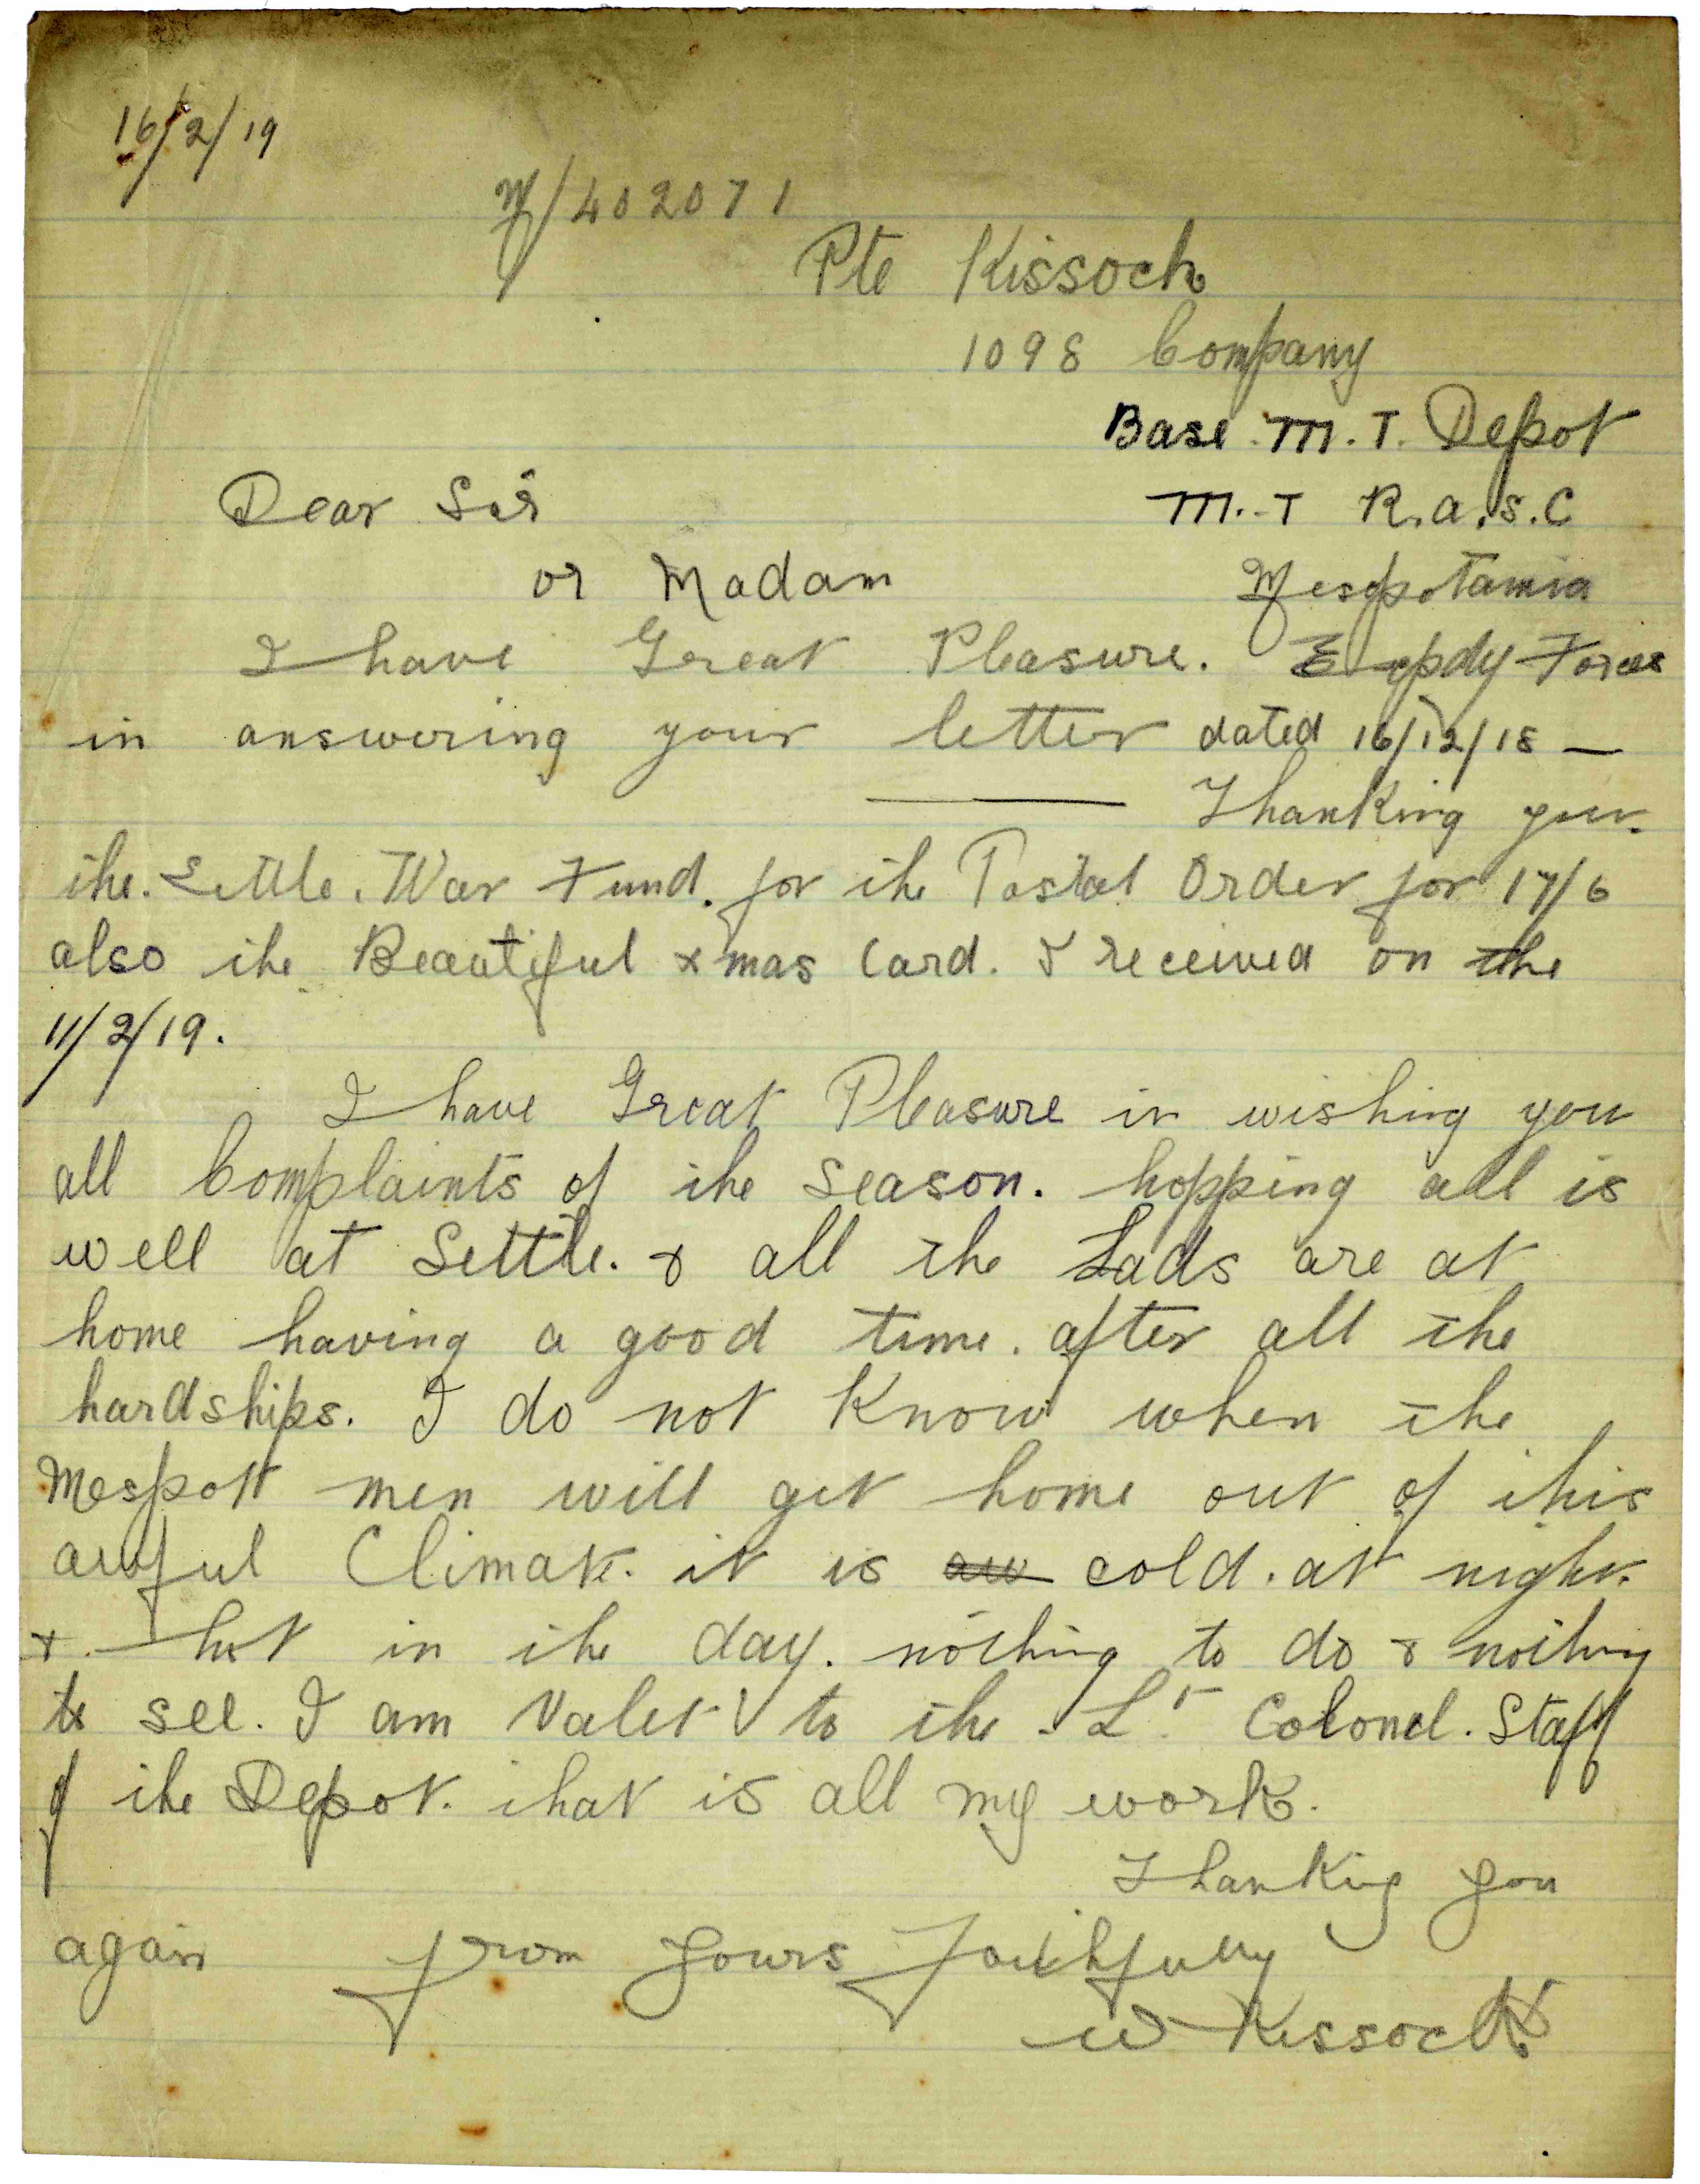 16/2/19
M/402071
Pte Kissock
1098 Company
Base M.T. Depot
Dear Sir
M.T R.a.s.C
or Madam
Mesopotamia
I have Great Pleasure.
Expdy Forces
in answering your letter dated 16/12/18 —
Thanking you.
the. Settle. War Fund. for the Postal Order for 17/6
also the Beautiful xmas Card. I received on the
11/2/19.
I have Great Pleasure in wishing you
all Complaints of the Season. hopping all is
well at Settle. & all the Lads are at
home having a good time. after all the
hardships. I do not Know when the
Mespott men will get home out of this
awful Climate. it is aw cold. at night.
& hot in the day. nothing to do & nothing
to see. I am Valet to the Lt Colonel. Staff
of the Depot. that is all my work.
Thanking you
again from Yours Faithfully
W Kissock